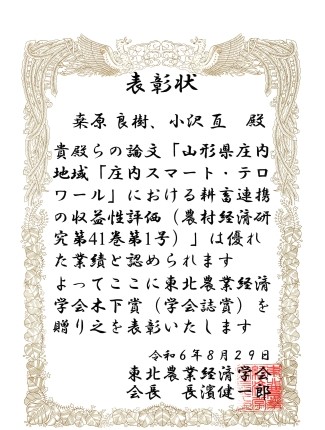 表彰状
桒原良樹、小沢亙　殿
貴殿らの論文「山形県庄内
地域「庄内スマート・テロ
ワール」における耕畜連携
の収益性評価（農村経済研
究第41巻第1号）」は優れ
た業績と認められます
よってここに東北農業経済
学会木下賞（学会誌賞）を
贈り之を表彰いたします
令和６年８月２９日
東北農業経済学会
会長　長濱健一郎